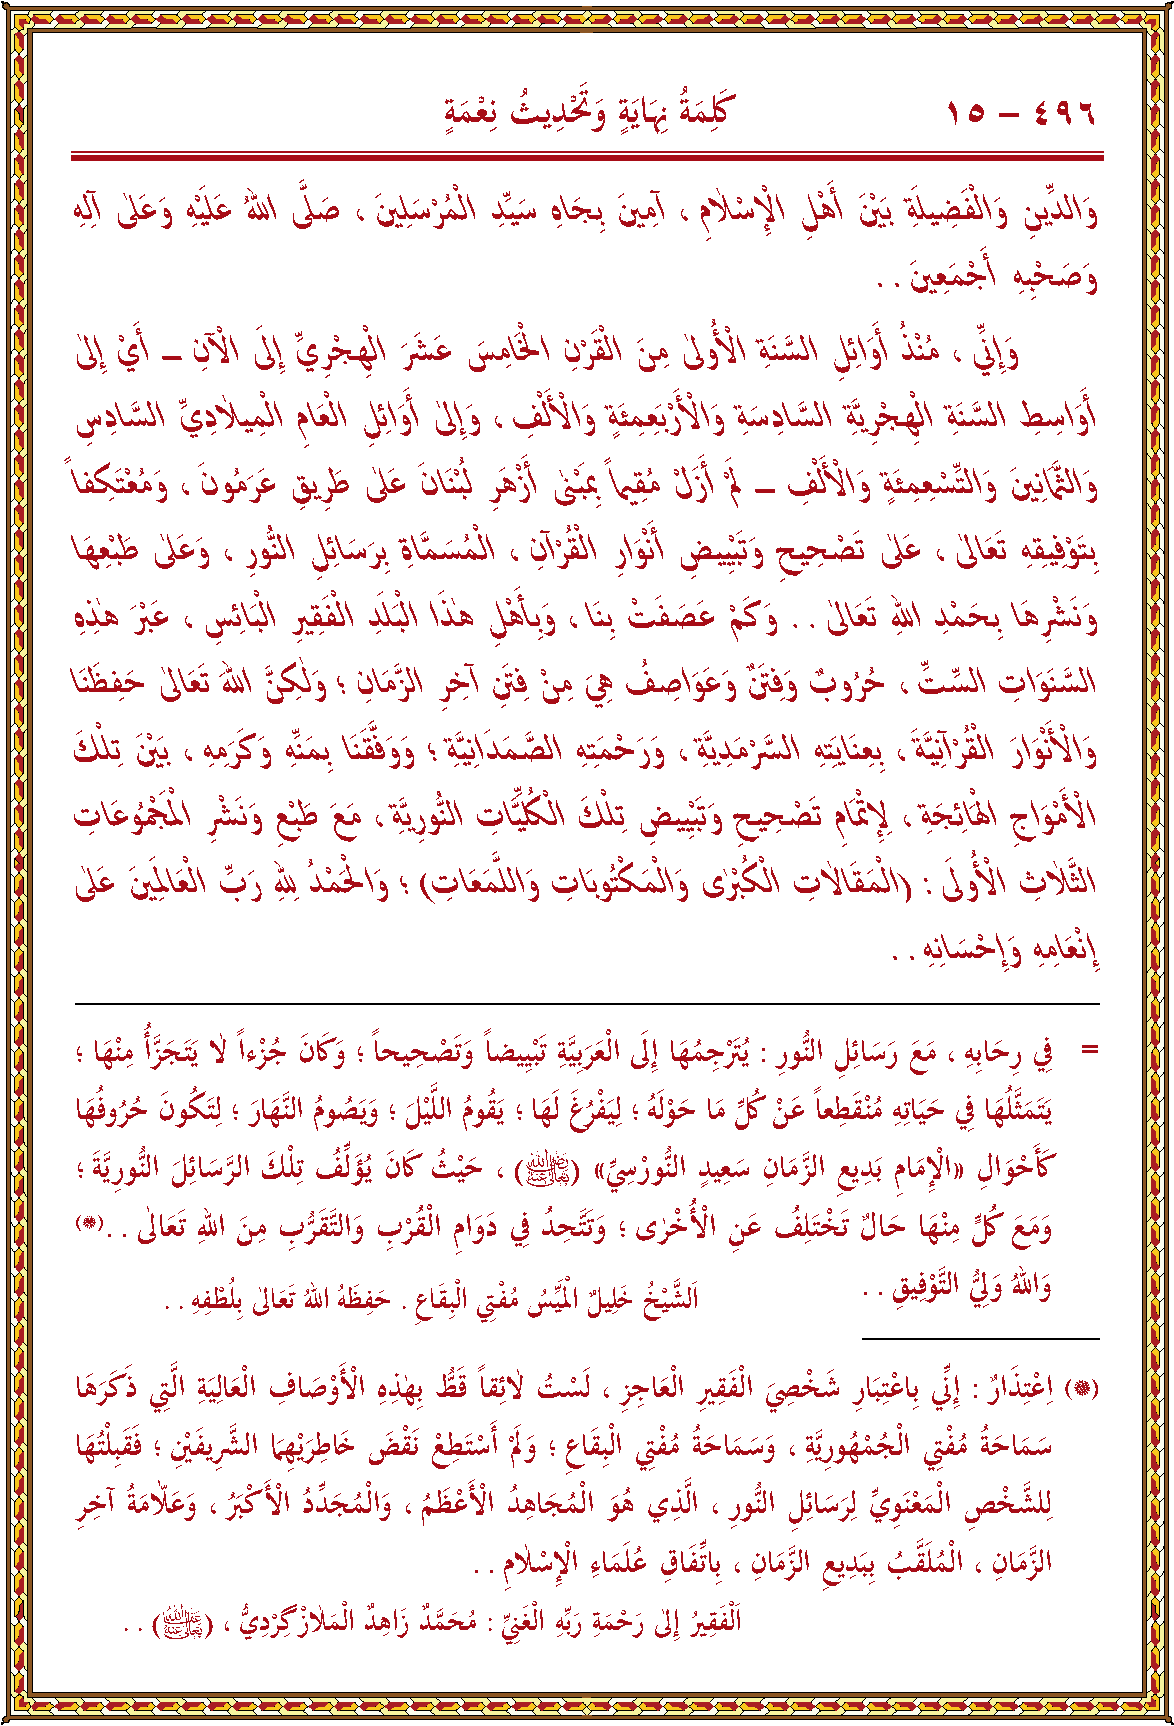 ٤٩٦ – ١٥ كَلِمَةُ نِهَايَةٍ وَتَحْدِيثُ نِعْمَةٍ
وَالدِّينِ وَالْفَضِيلَةِ بَيْنَ أَهْلِ الْإِسْلَامِ ، آمِينَ بِجَاهِ سَيِّدِ الْمُرْسَلِينَ ، صَلَّى اللهُ عَلَيْهِ وَعَلٰى آلِهِ
وَصَحْبِهِ أَجْمَعِينَ . .
وَإِنِّي ، مُنْذُ أَوَائِلِ السَّنَةِ الْأُولٰى مِنَ الْقَرْنِ الْخَامِسَ عَشَرَ الْهِجْرِيِّ إِلَى الْآنِ – أَيْ إِلٰى
أَوَاسِطِ السَّنَةِ الْهِجْرِيَّةِ السَّادِسَةِ وَالْأَرْبَعِمِئَةٍ وَالْأَلْفِ ، وَإِلٰى أَوَائِلِ الْعَامِ الْمِيلَادِيِّ السَّادِسِ
وَالثَّمَانِينَ وَالتِّسْعِمِئَةٍ وَالْأَلْفِ – لَمْ أَزَلْ مُقِيماً بِمَبْنٰى أَزْهَرِ لُبْنَانَ عَلٰى طَرِيقِ عَرَمُونَ ، وَمُعْتَكِفاً
بِتَوْفِيقِهِ تَعَالٰى ، عَلٰى تَصْحِيحِ وَتَبْيِيضِ أَنْوَارِ الْقُرْآنِ ، الْمُسَمَّاةِ بِرَسَائِلِ النُّورِ ، وَعَلٰى طَبْعِهَا
وَنَشْرِهَا بِحَمْدِ اللهِ تَعَالٰى . . وَكَمْ عَصَفَتْ بِنَا ، وَبِأَهْلِ هٰذَا الْبَلَدِ الْفَقِيرِ الْبَائِسِ ، عَبْرَ هٰذِهِ
السَّنَوَاتِ السِّتِّ ، حُرُوبٌ وَفِتَنٌ وَعَوَاصِفُ هِيَ مِنْ فِتَنِ آخِرِ الزَّمَانِ ؛ وَلٰكِنَّ اللهَ تَعَالٰى حَفِظَنَا
وَالْأَنْوَارَ الْقُرْآنِيَّةَ ، بِعِنَايَتِهِ السَّرْمَدِيَّةِ ، وَرَحْمَتِهِ الصَّمَدَانِيَّةِ ؛ وَوَفَّقَنَا بِمَنِّهِ وَكَرَمِهِ ، بَيْنَ تِلْكَ
الْأَمْوَاجِ الْهَائِجَةِ ، لِإِتْمَامِ تَصْحِيحِ وَتَبْيِيضِ تِلْكَ الْكُلِّيَّاتِ النُّورِيَّةِ ، مَعَ طَبْعِ وَنَشْرِ الْمَجْمُوعَاتِ
الثَّلَاثِ الْأُولَى : (الْمَقَالَاتِ الْكُبْرٰى وَالْمَكْتُوبَاتِ وَاللَّمَعَاتِ) ؛ وَالْحَمْدُ لِلهِ رَبِّ الْعَالَمِينَ عَلٰى
إِنْعَامِهِ وَإِحْسَانِهِ . .
= فِي رِحَابِهِ ، مَعَ رَسَائِلِ النُّورِ : يُتَرْجِمُهَا إِلَى الْعَرَبِيَّةِ تَبْيِيضاً وَتَصْحِيحاً ؛ وَكَانَ جُزْءاً لَا يَتَجَزَّأُ مِنْهَا ؛
يَتَمَثَّلُهَا فِي حَيَاتِهِ مُنْقَطِعاً عَنْ كُلِّ مَا حَوْلَهُ ؛ لِيَفْرُغَ لَهَا ؛ يَقُومُ اللَّيْلَ ؛ وَيَصُومُ النَّهَارَ ؛ لِتَكُونَ حُرُوفُهَا
كَأَحْوَالِ «الْإِمَامِ بَدِيعِ الزَّمَانِ سَعِيدٍ النُّورْسِيِّ» (رضي الله تعالى عنه) ، حَيْثُ كَانَ يُؤَلِّفُ تِلْكَ الرَّسَائِلَ النُّورِيَّةَ ؛
وَمَعَ كُلٍّ مِنْهَا حَالٌ تَخْتَلِفُ عَنِ الْأُخْرٰى ؛ وَتَتَّحِدُ فِي دَوَامِ الْقُرْبِ وَالتَّقَرُّبِ مِنَ اللهِ تَعَالٰى . . (*)
وَاللهُ وَلِيُّ التَّوْفِيقِ . .
اَلشَّيْخُ خَلِيلٌ الْمَيِّسُ مُفْتِي الْبِقَاعِ . حَفِظَهُ اللهُ تَعَالٰى بِلُطْفِهِ . .
(*) اِعْتِذَارٌ : إِنِّي بِاعْتِبَارِ شَخْصِيَ الْفَقِيرِ الْعَاجِزِ ، لَسْتُ لَائِقاً قَطُّ بِهٰذِهِ الْأَوْصَافِ الْعَالِيَةِ الَّتِي ذَكَرَهَا
سَمَاحَةُ مُفْتِي الْجُمْهُورِيَّةِ ، وَسَمَاحَةُ مُفْتِي الْبِقَاعِ ؛ وَلَمْ أَسْتَطِعْ نَقْضَ خَاطِرَيْهِمَا الشَّرِيفَيْنِ ؛ فَقَبِلْتُهَا
لِلشَّخْصِ الْمَعْنَوِيِّ لِرَسَائِلِ النُّورِ ، الَّذِي هُوَ الْمُجَاهِدُ الْأَعْظَمُ ، وَالْمُجَدِّدُ الْأَكْبَرُ ، وَعَلَّامَةُ آخِرِ
الزَّمَانِ ، الْمُلَقَّبُ بِبَدِيعِ الزَّمَانِ ، بِاتِّفَاقِ عُلَمَاءِ الْإِسْلَامِ . .
اَلْفَقِيرُ إِلٰى رَحْمَةِ رَبِّهِ الْغَنِيِّ : مُحَمَّدٌ زَاهِدٌ الْمَلَازْگِرْدِيُّ ، () . .